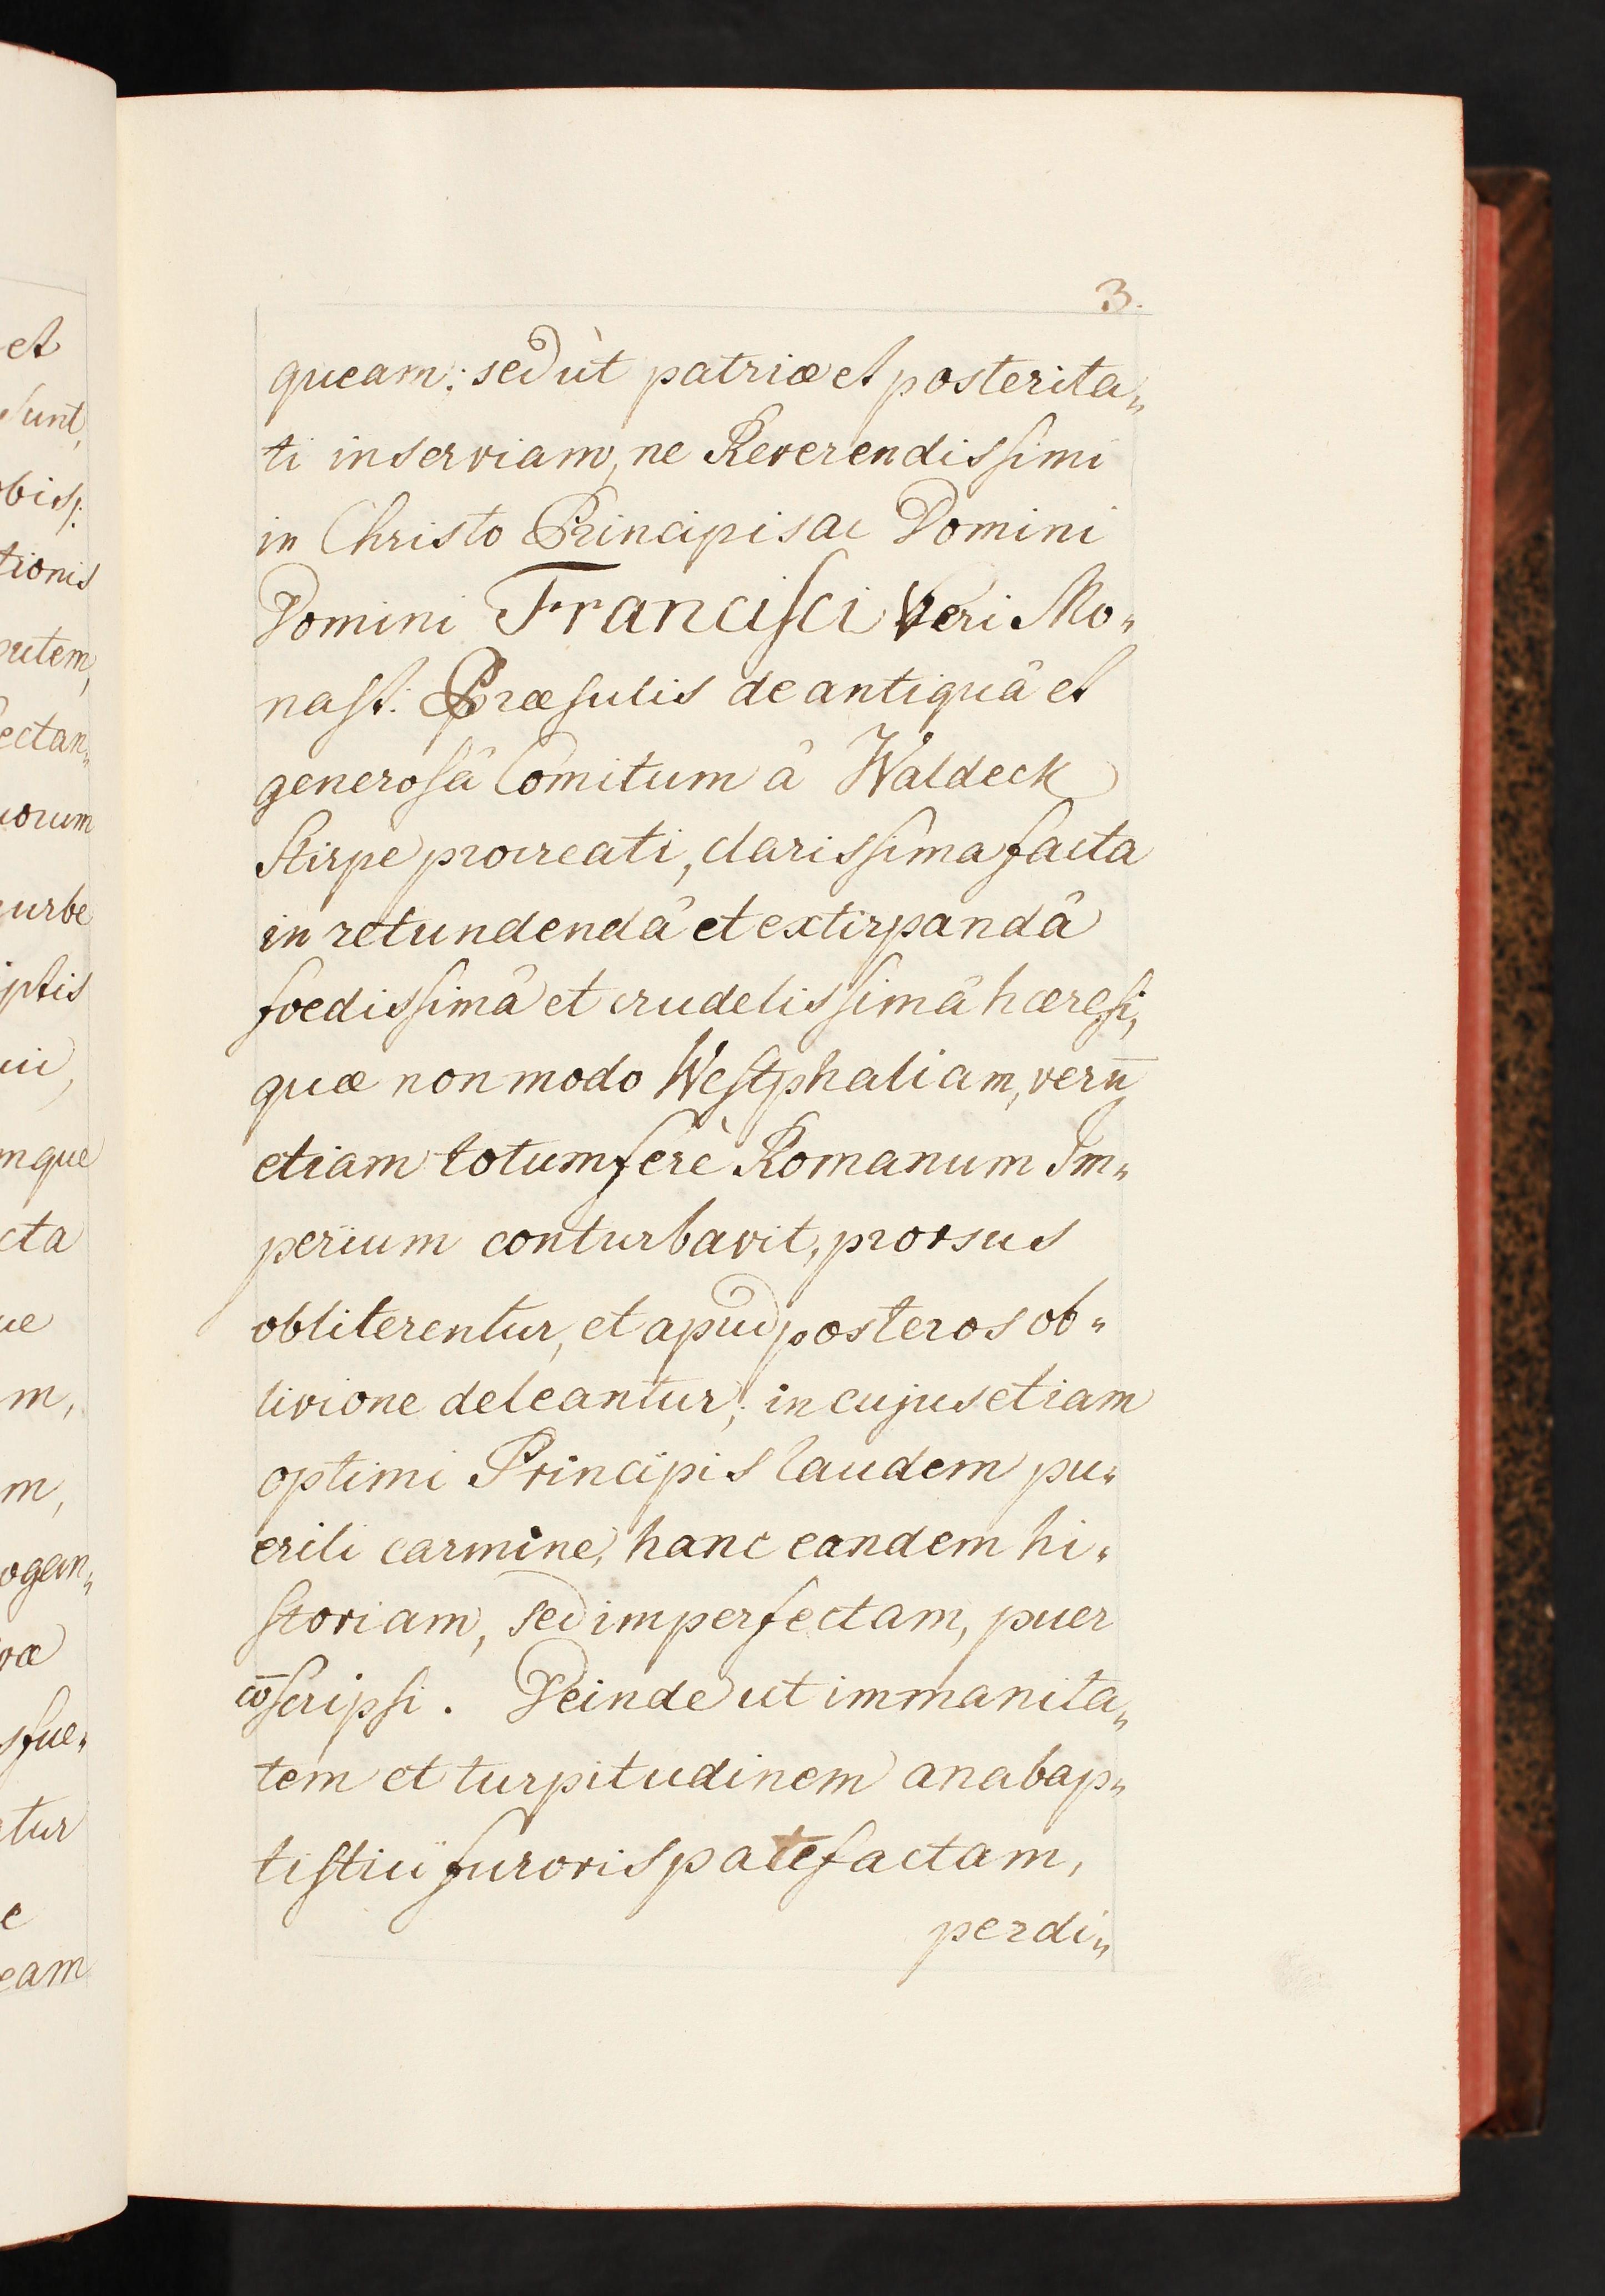 et
sunt,
obisƒ:
tionis
putem,
ectan„
uorum
urbe
iptis
uii,
mque
cta
ue
m,
m,
ogan„
væ
sfue„
atur
e
eam
3.
queam: sed ùt patriæ et posterita„
ti inserviam, ne Reverendissimi
in Christo Principis ac Domini
Domini Francisci veri Mo„
nast: Præsulis de antiquâ et
generosâ Comitum â Waldeck
Stirpe procreati, clarissima facta
in retundendâ et extirpandâ
foedissimâ et crudelissimâ hæresi,
quæ non modo Westphaliam, verū
etiam totum ferè Romanum Im„
perium conturbavit, prorsus
obliterentur, et apud posteros ob„
livione deleantur; in cujus etiam
optimi Principis laudem pu„
erili carmine, hanc eandem hi„
storiam, sed imperfectam, puer
cōscripsi. Deinde ut immanita„
tem et turpitudinem anabap„
tistici furoris patefactam,
perdi„